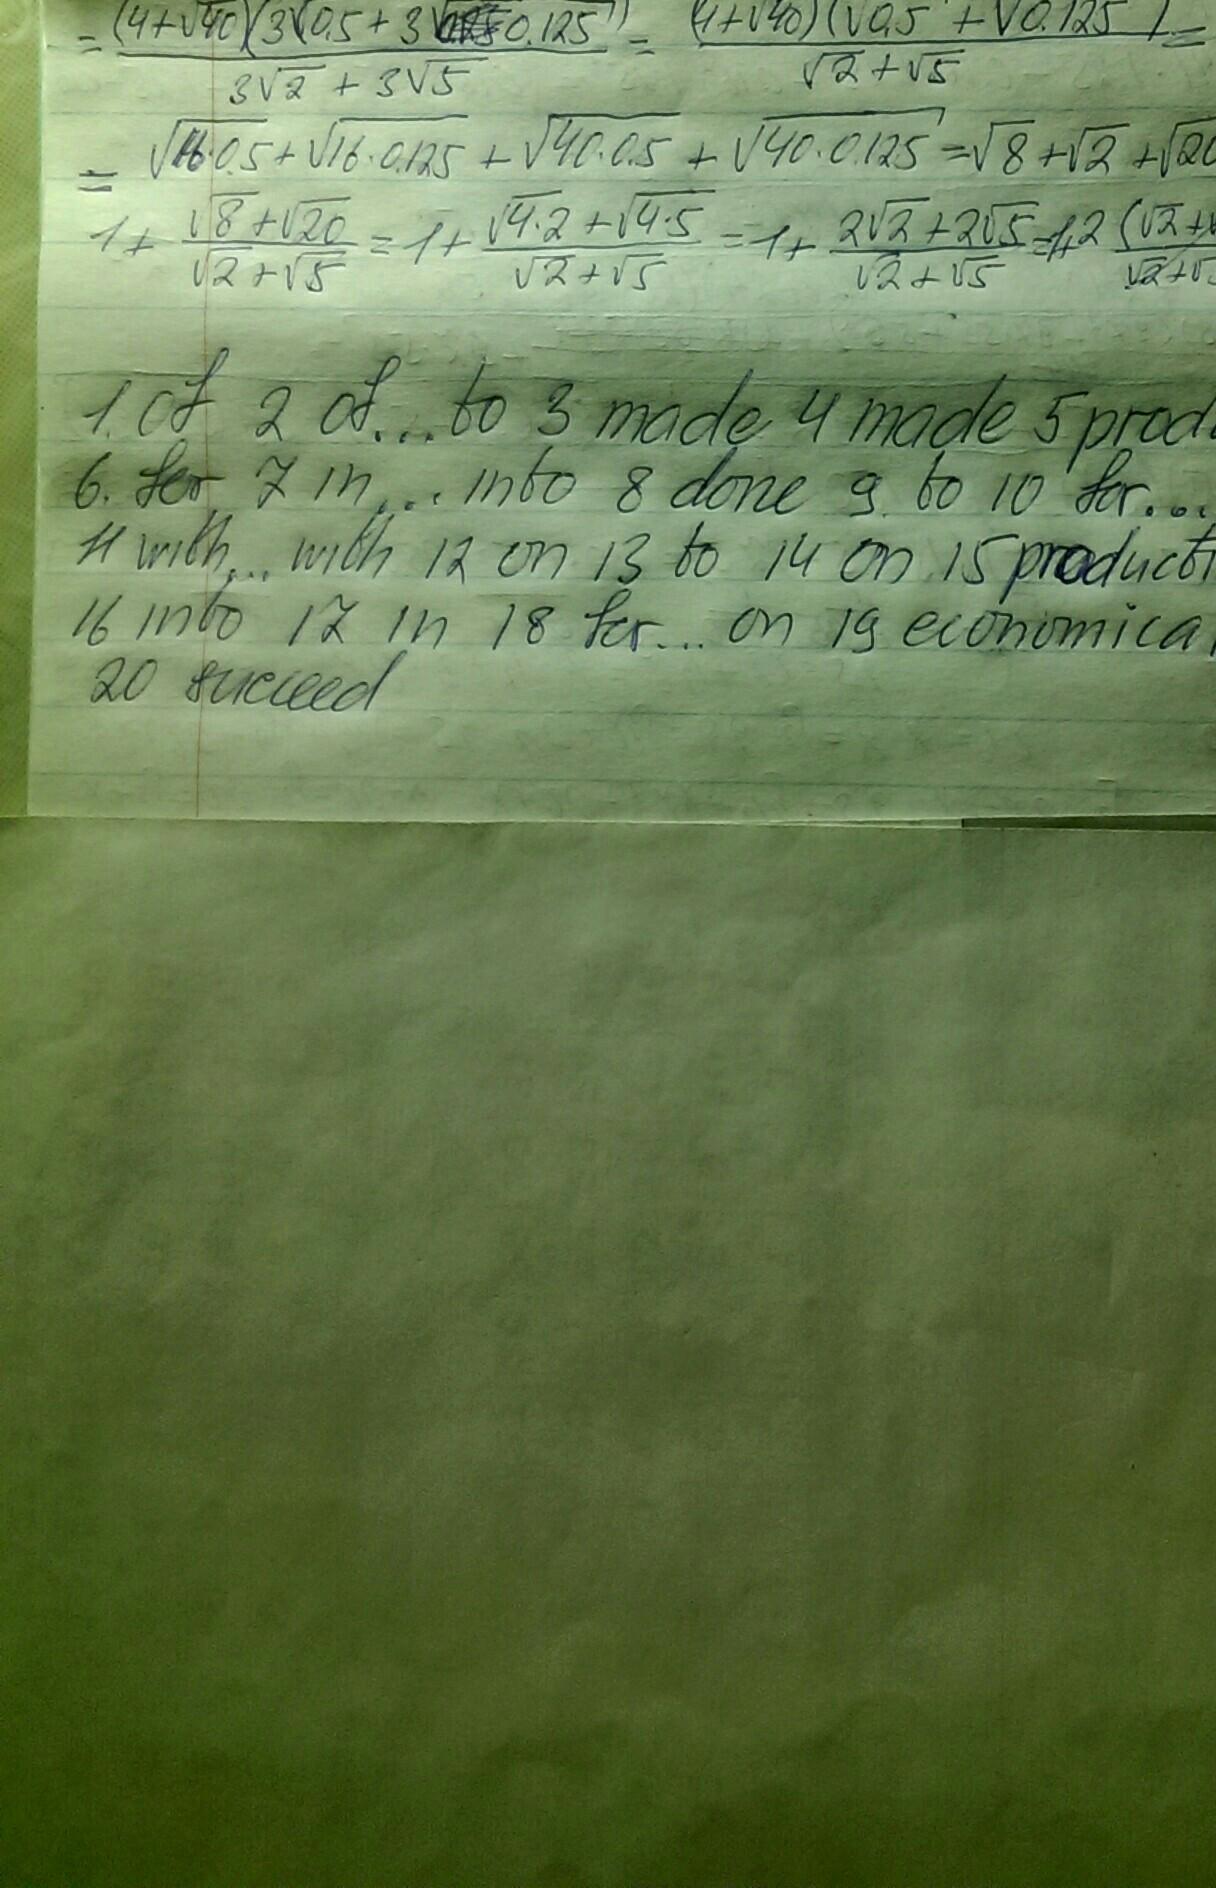 = (4+√40)(3√0.5 + 3√0.125) / 3√2 + 3√5 = (4+√40)(√0.5 + √0.125) / √2+√5 =
= √16·0.5 + √16·0.125 + √40·0.5 + √40·0.125 = √8 + √2 + √20
1 + √8+√20 / √2+√5 = 1 + √4·2 + √4·5 / √2+√5 = 1 + 2√2+2√5 / √2+√5 = 1+2 (√2+ / √2+√5
1. of 2 of... to 3 made 4 made 5 prod
6. for 7 in... into 8 done 9 to 10 for...
11 with... with 12 on 13 to 14 on 15 producti
16 into 17 in 18 for... on 19 economical
20 succeed